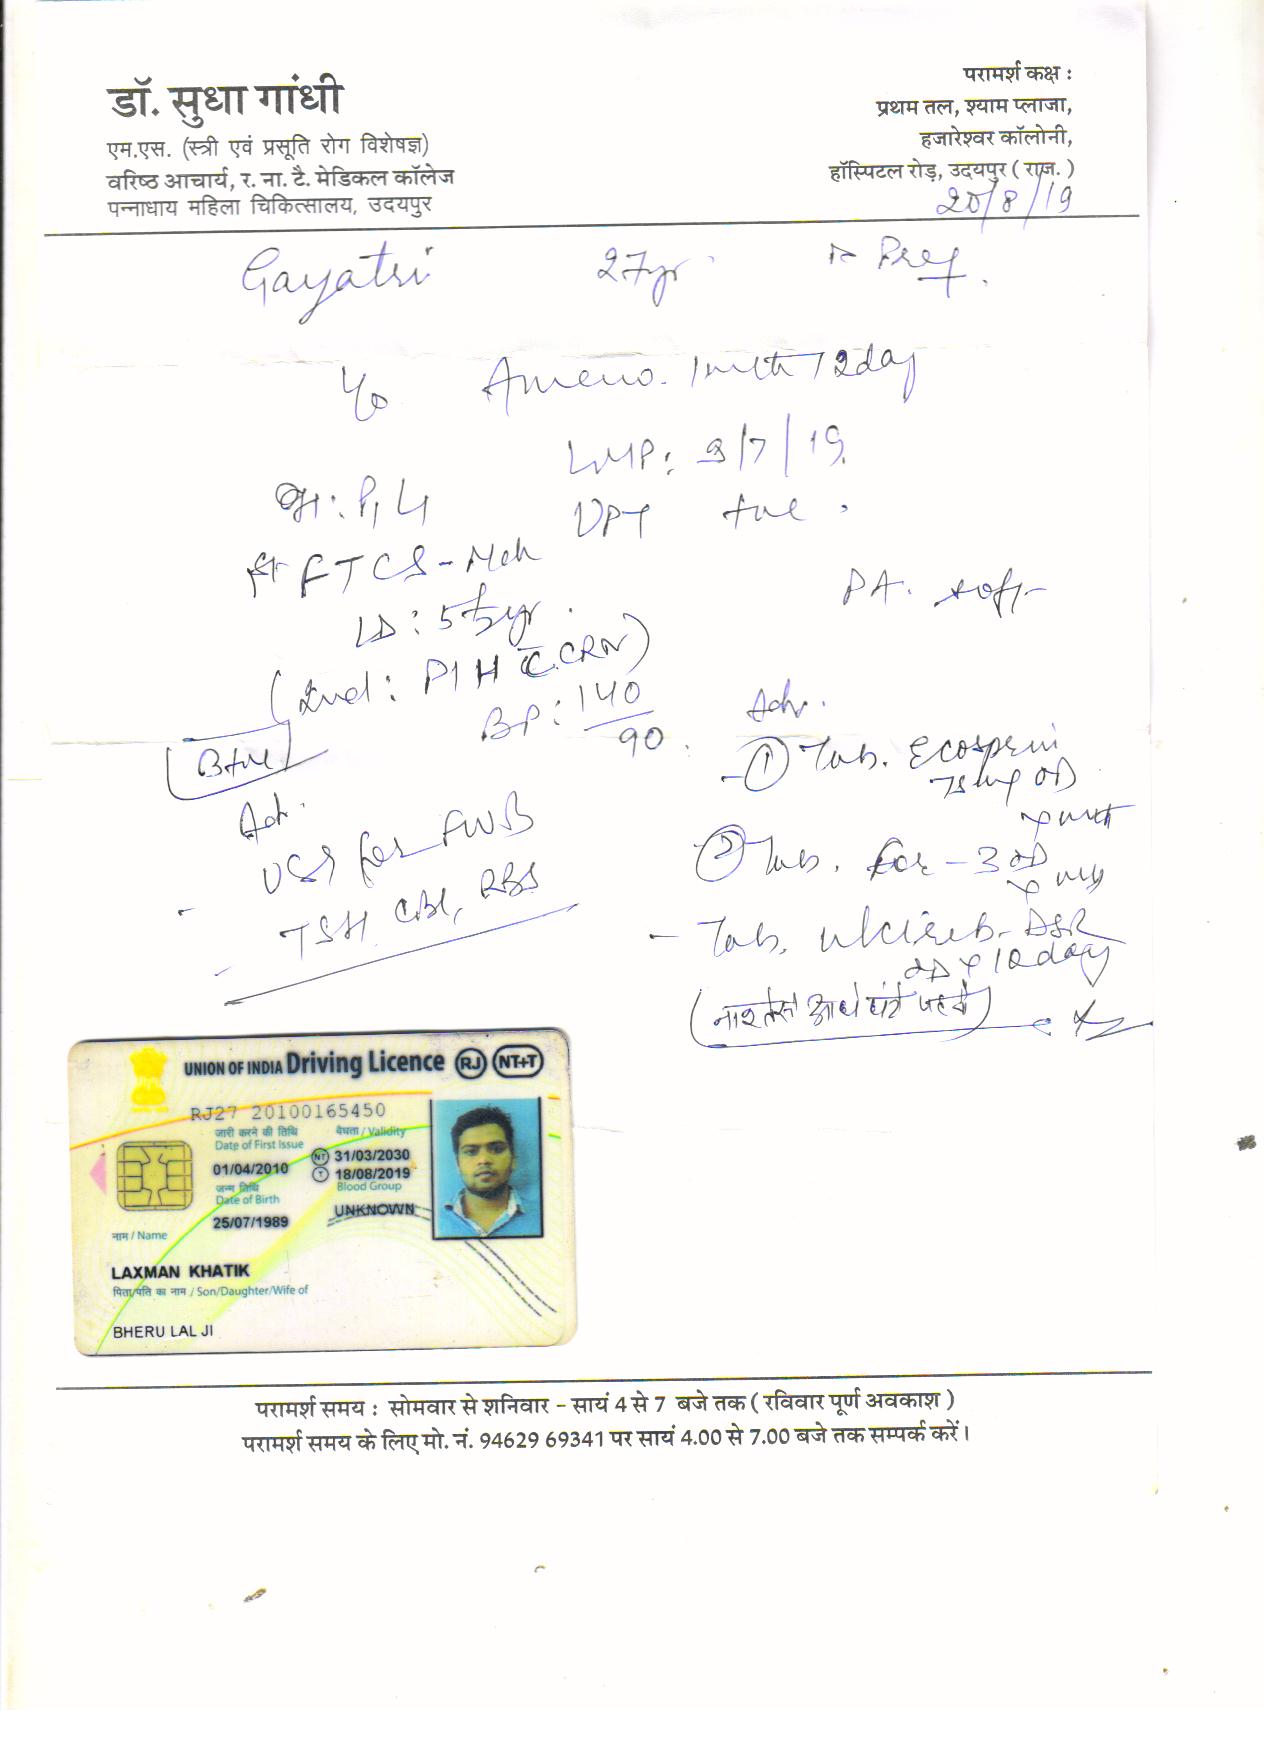 डॉ. सुधा गांधी
एम.एस. (स्त्री एवं प्रसूति रोग विशेषज्ञ)
वरिष्ठ आचार्य, र. ना. टै. मेडिकल कॉलेज
पन्नाधाय महिला चिकित्सालय, उदयपुर
परामर्श कक्ष :
प्रथम तल, श्याम प्लाजा,
हजारेश्वर कॉलोनी,
हॉस्पिटल रोड़, उदयपुर ( राज. )
20/8/19
Gayatri 27yr.
Ameno. 1mth 12day
LMP: 9/7/19
UPT +ve.
FTCS - Mch
LD: 5½yr.
(Ind: PIH
BP: 140/90
B+ve
Adv.
USG for FWB
TSH, CBC, RBS
PA. soft
Adv.
① Tab. Ecosprin
75mg OD
② Tab. - 3 OD
- Tab. - DSR
OD x 10day
(नाश्ते से आधे घंटे पहले)
UNION OF INDIA Driving Licence RJ NT+T
RJ27 20100165450
जारी करने की तिथि वैधता / Validity
Date of First Issue
01/04/2010 NT 31/03/2030
T 18/08/2019
जन्म तिथि Blood Group
Date of Birth
25/07/1989 UNKNOWN
नाम / Name
LAXMAN KHATIK
पिता/पति का नाम / Son/Daughter/Wife of
BHERU LAL JI
परामर्श समय : सोमवार से शनिवार - सायं 4 से 7 बजे तक ( रविवार पूर्ण अवकाश )
परामर्श समय के लिए मो. नं. 94629 69341 पर सायं 4.00 से 7.00 बजे तक सम्पर्क करें।